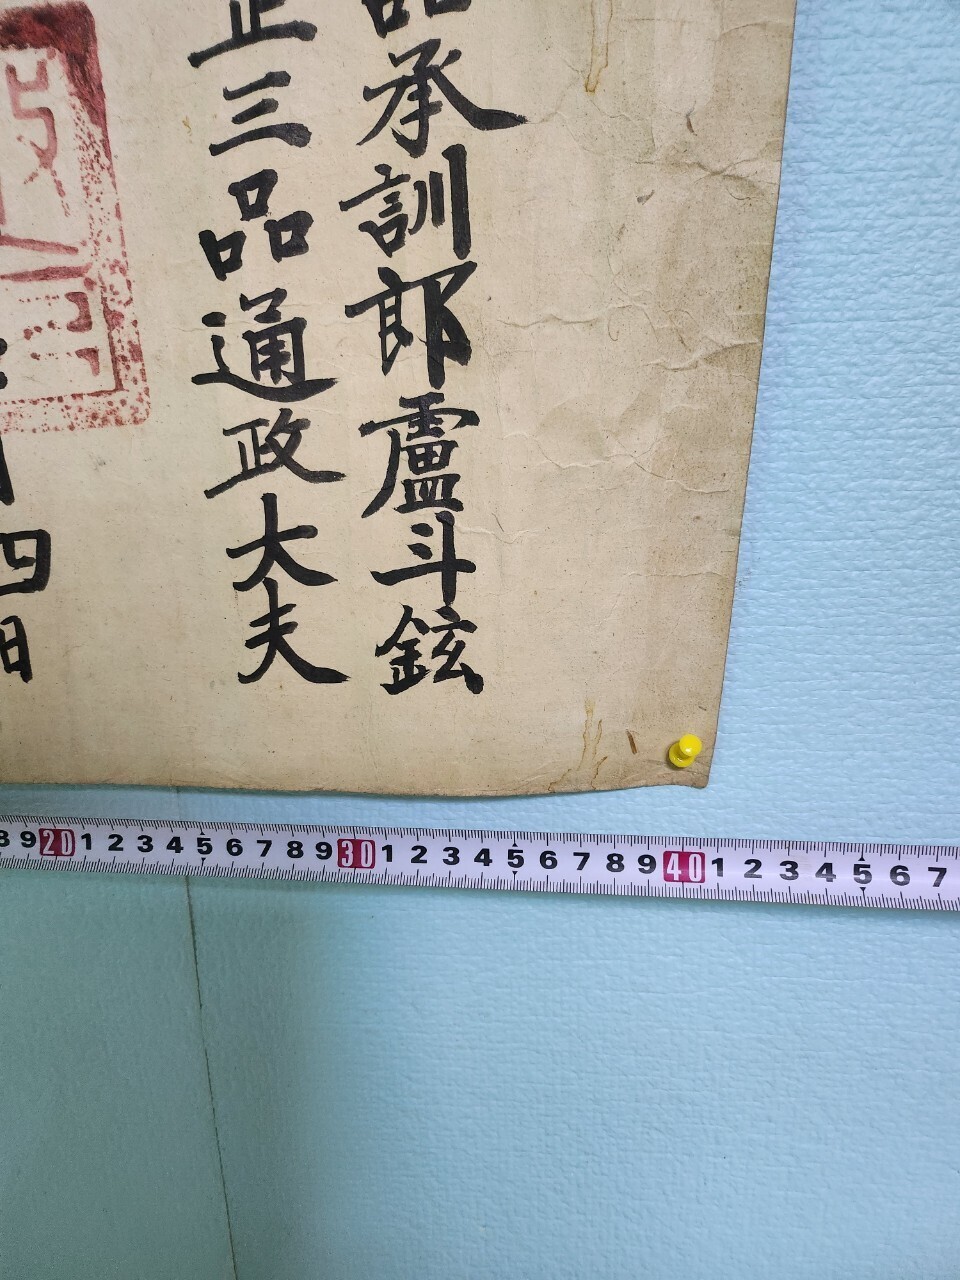 品承訓郎盧斗鉉
正三品通政大夫
四日
8 9 20 1 2 3 4 5 6 7 8 9 30 1 2 3 4 5 6 7 8 9 40 1 2 3 4 5 6 7